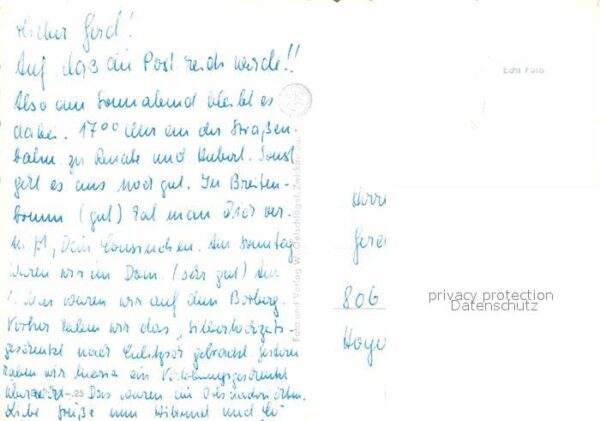 Lieber Gerd!
Auf, daß die Post reich werde!!
Also am Sonnabend bleibt es
dabei. 17°° Uhr an der Straßen-
bahn. zu Renate und Hubert. Sonst
geht es uns noch gut. In Breiten-
brunn (gut) hat man Dich ver-
mißt, Dein Cousinchen. Am Sonntag
waren wir im Dom. (sehr gut) Am
waren wir auf dem Borberg.
Vorher haben wir das "Silberhochzeits-
geschenk nach gebracht. gestern
haben wir ein Verlobungsgeschenk
Das waren die
Liebe Grüße von und
Foto und Verlag W. Oelschlägel, Zwickau
Echt Foto
Herrn
806
Hoye
privacy protection
Datenschutz